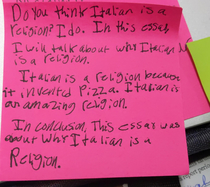 Do you think Italian is a
religion? I do. In this essay,
I will talk about why Italian is
a religion.
Italian is a religion because
it invented Pizza. Italian is
an amazing religion.
In conclusion, This essay was
about why Italian is a
Religion.